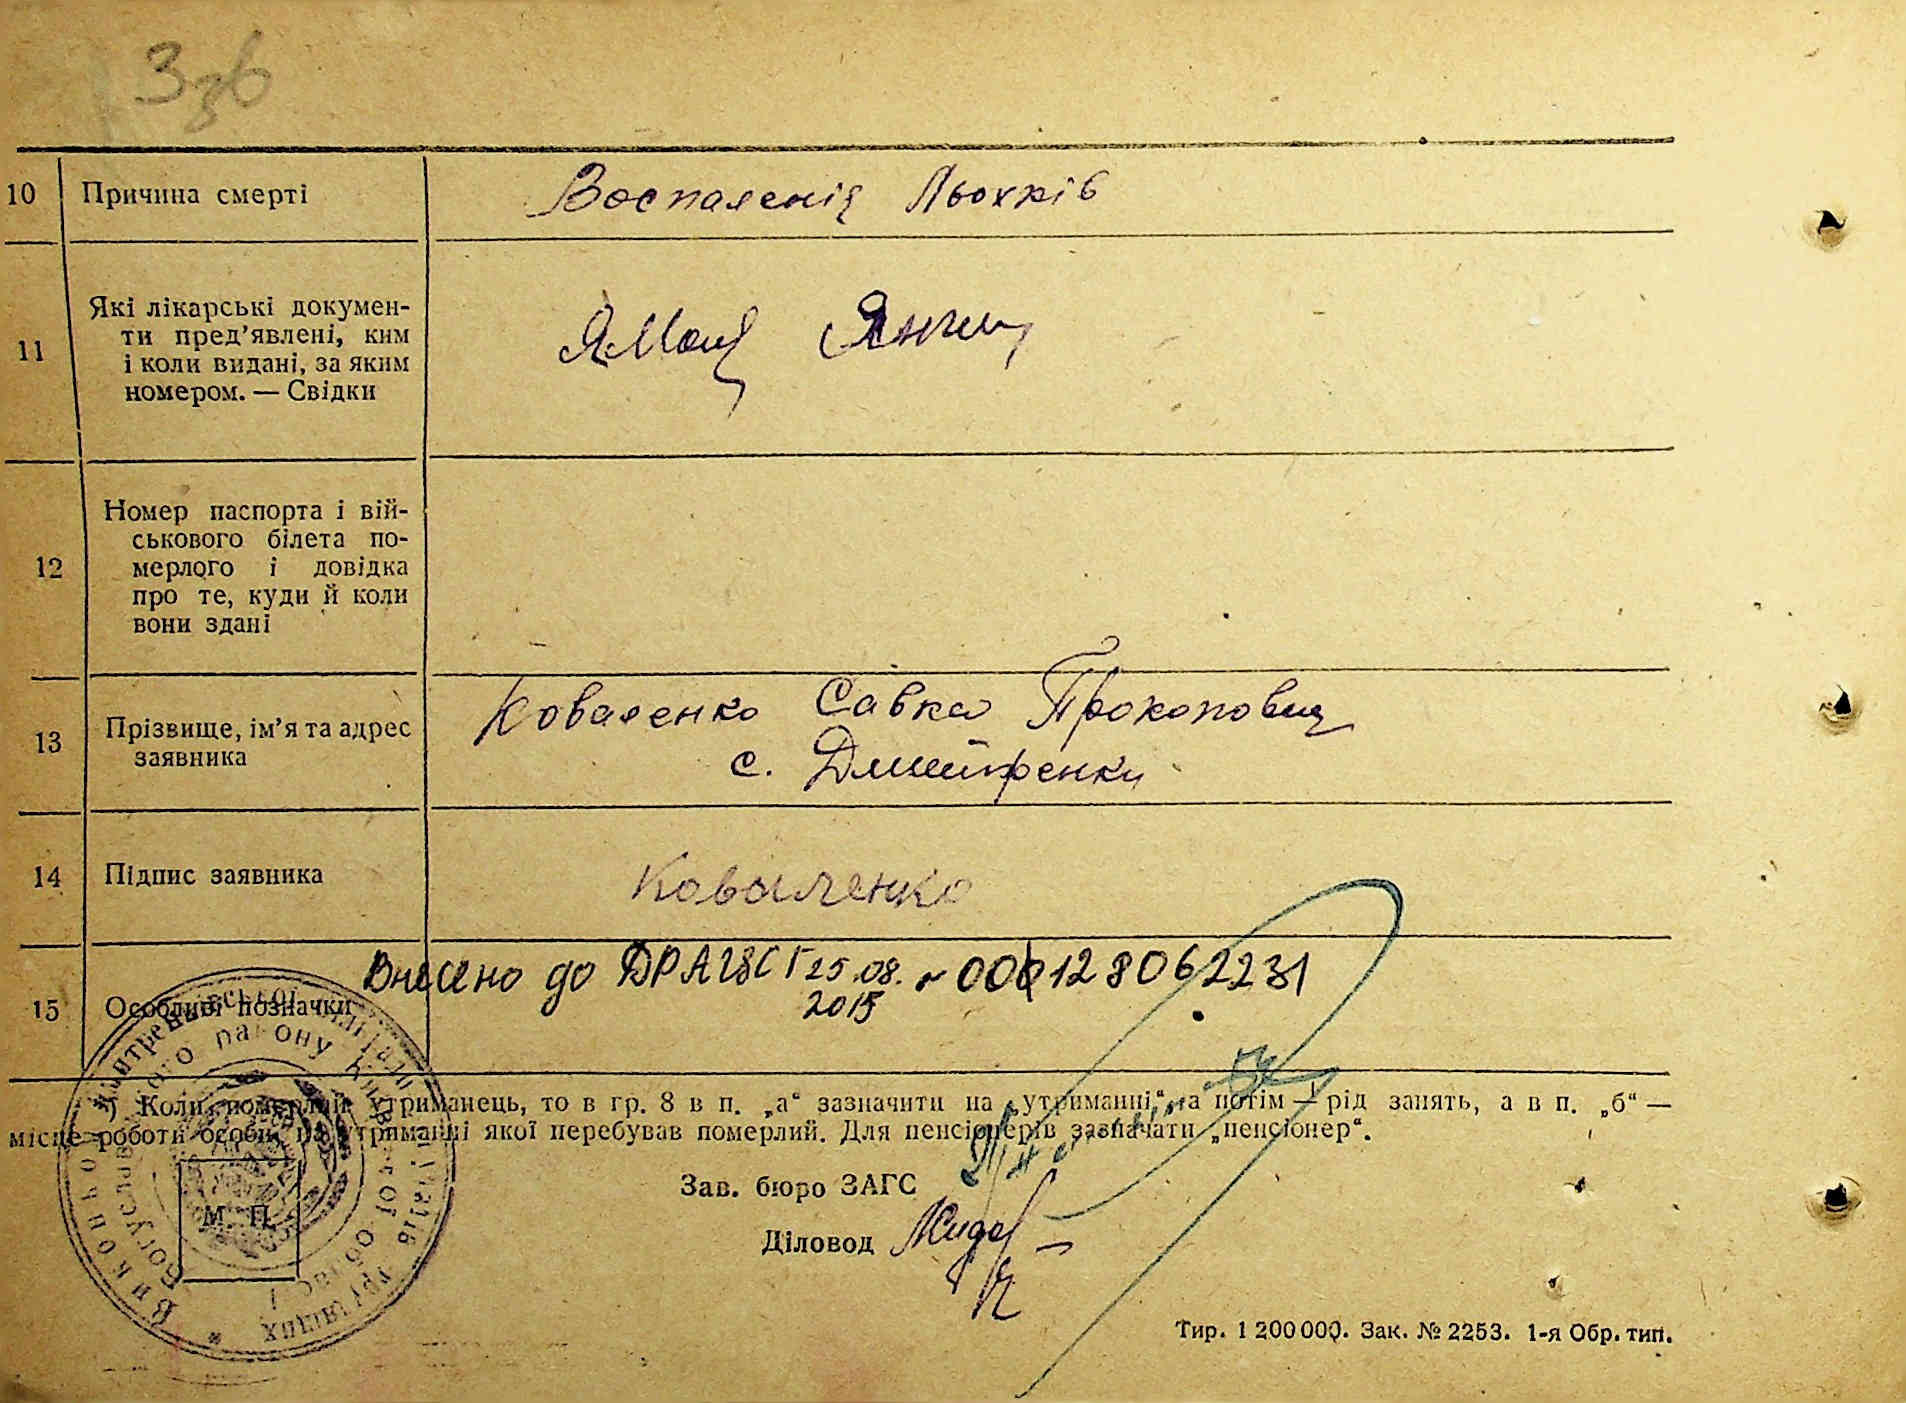 10 Причина смерті Воспаленія Льохків
Які лікарські докумен-
ти пред'явлені, ким
11 і коли видані, за яким
номером. — Свідки
Номер паспорта і вій-
ськового білета по-
12 мерлого і довідка
про те, куди й коли
вони здані
13 Прізвище, ім'я та адрес Коваленко Савка Прокопович
заявника с. Дмитренки
14 Підпис заявника Коваленко
Внесено до ДРАЦСГ 25.08. 2015 № 000128062231
15 Особливі позначки
*) Коли померлий утриманець, то в гр. 8 в п. „а“ зазначити на „утриманні“, а потім — рід занять, а в п. „б“ —
місце роботи особи, на утриманні якої перебував померлий. Для пенсіонерів зазначати „пенсіонер“.
Зав. бюро ЗАГС
Діловод
М. П.
Тир. 1 200 000. Зак. № 2253. 1-я Обр. тип.